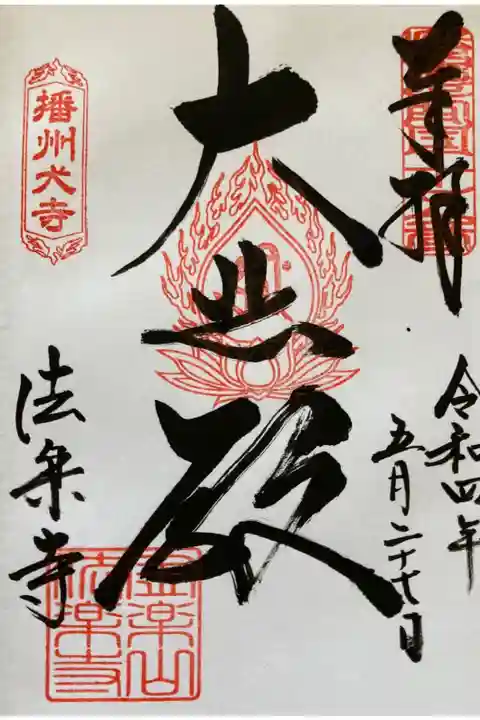 奉拝
令和四年
五月二十七日
大悲殿
播州犬寺
法楽寺
金楽山
法楽寺